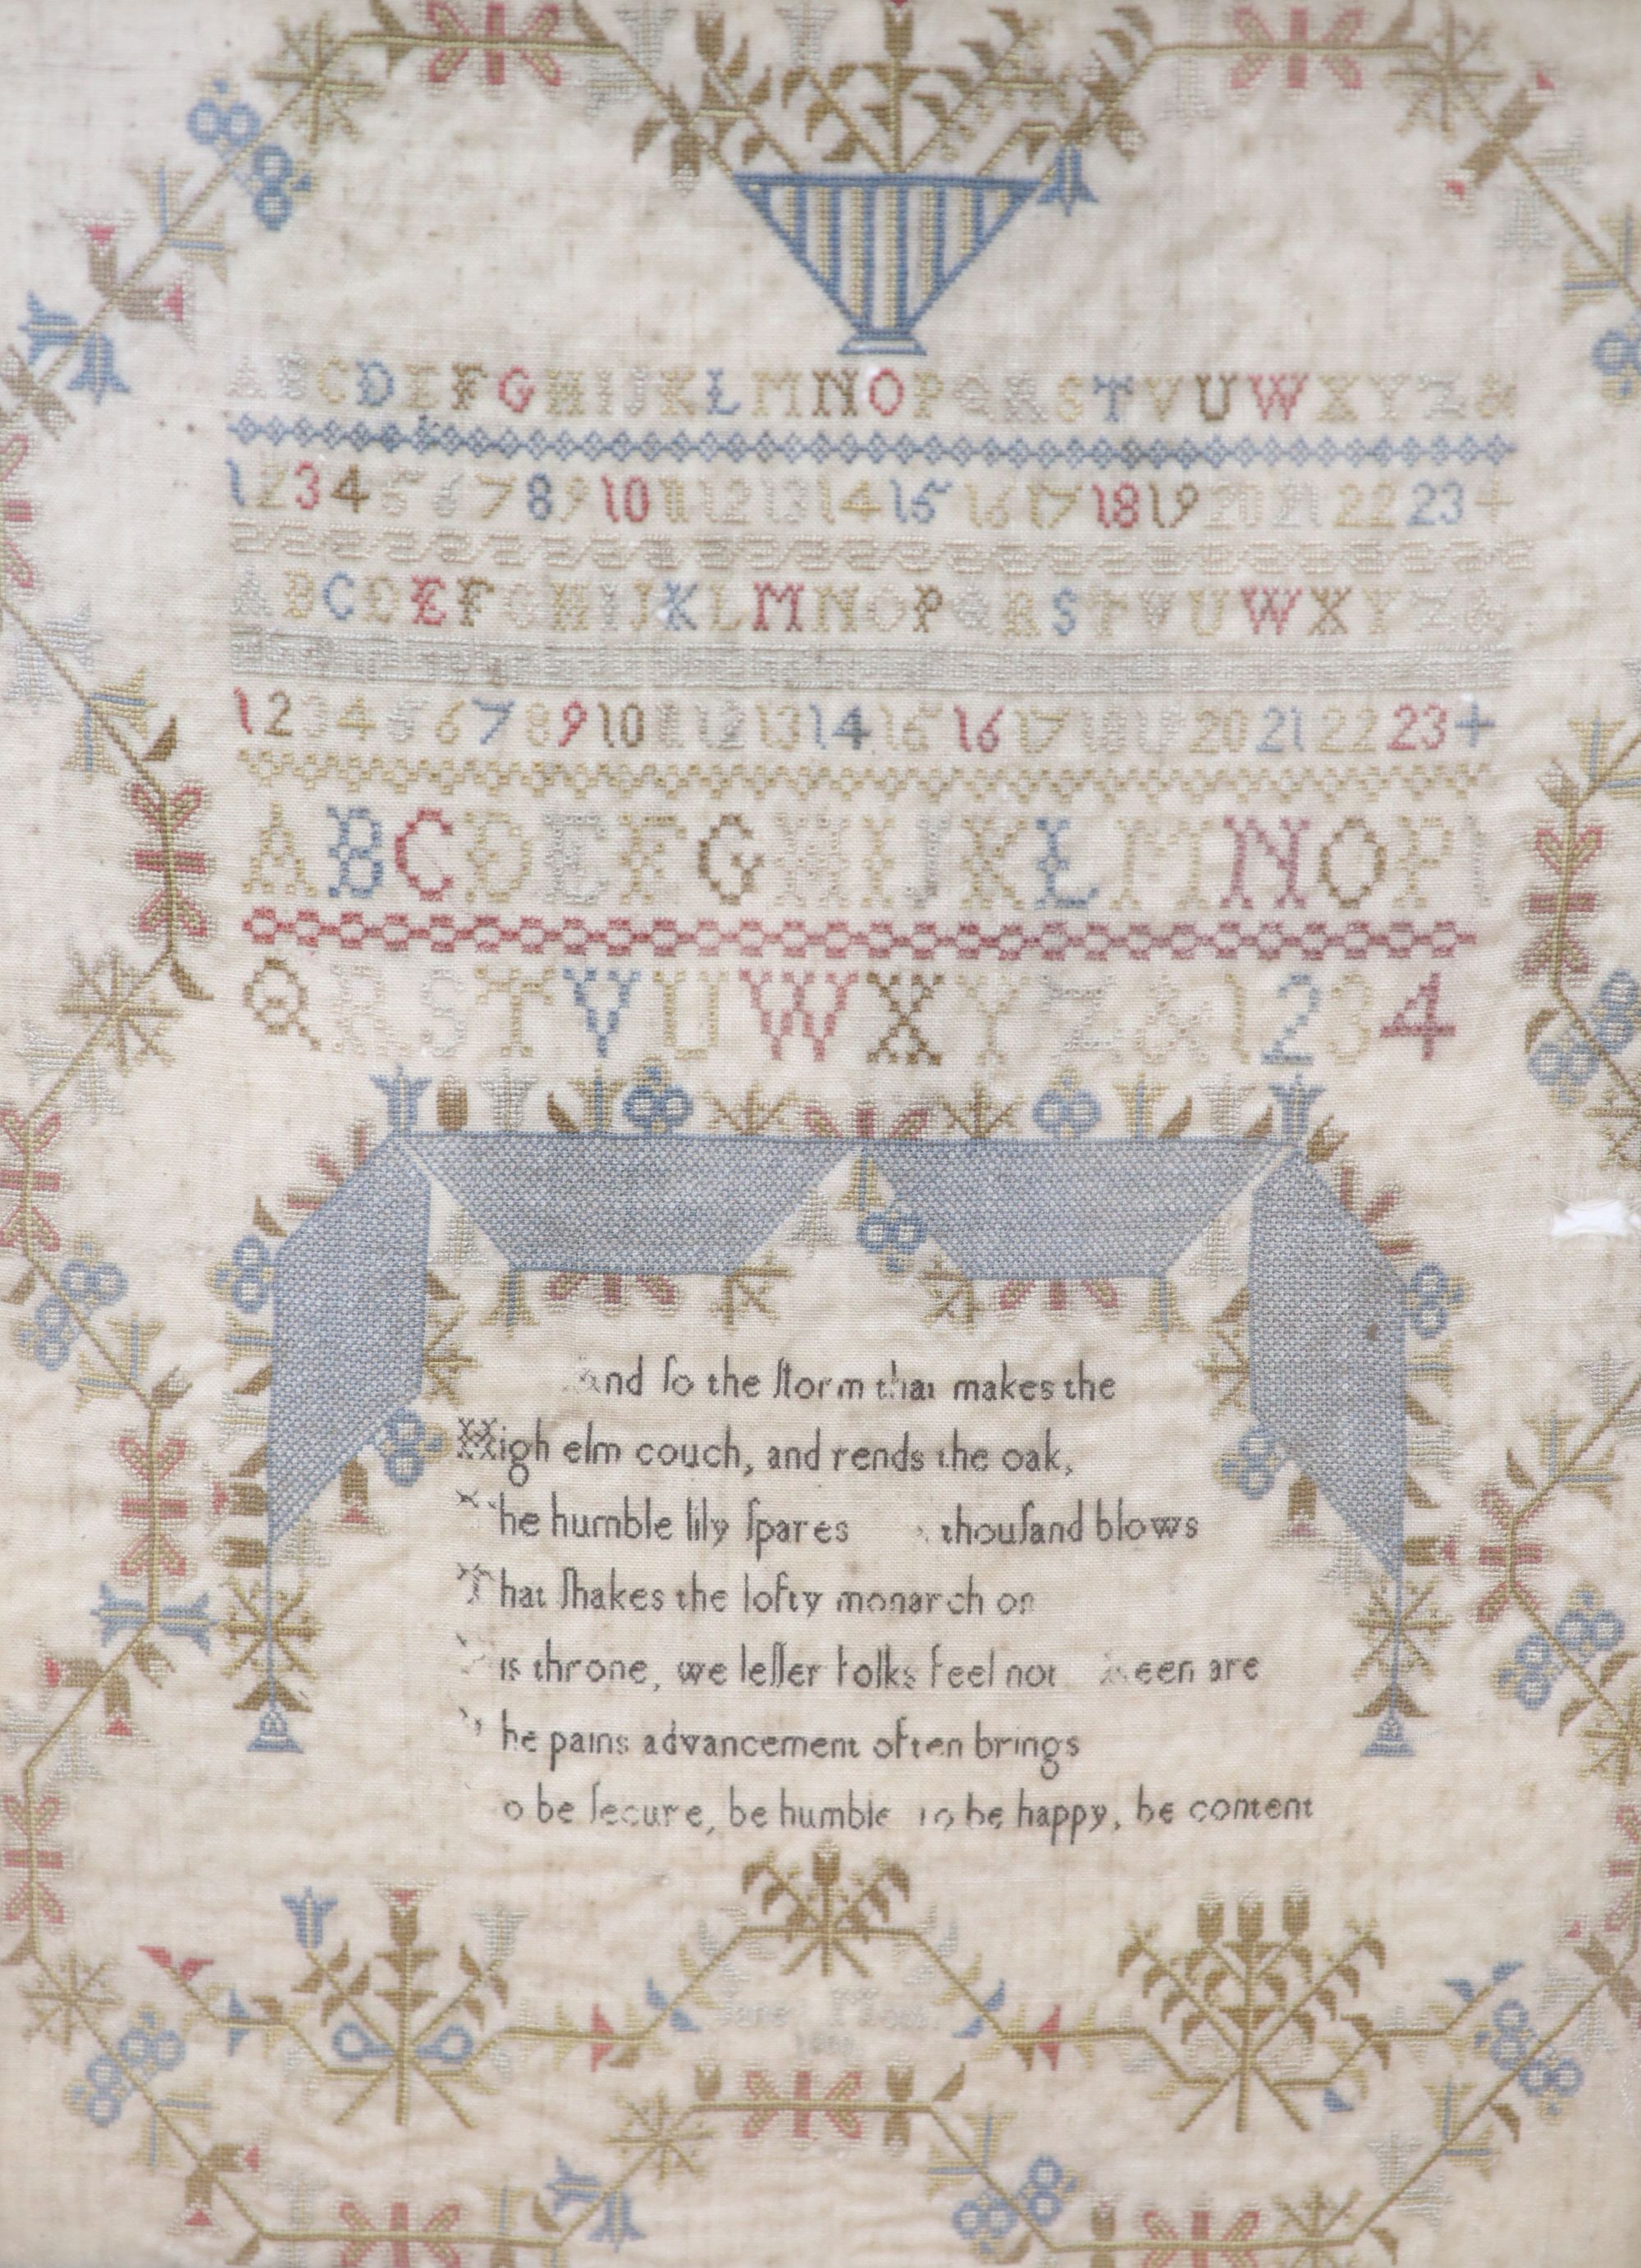 A B C D E F G H I J K L M N O P Q R S T V U W X Y Z &
1 2 3 4 5 6 7 8 9 10 11 12 13 14 15 16 17 18 19 20 21 22 23 +
A B C D E F G H I J K L M N O P Q R S T V U W X Y Z &
1 2 3 4 5 6 7 8 9 10 11 12 13 14 15 16 17 18 19 20 21 22 23 +
A B C D E F G H I J K L M N O P
Q R S T V U W X Y Z & 1 2 3 4
And ſo the ſtorm that makes the
High elm couch, and rends the oak,
The humble lily ſpares thouſand blows
That ſhakes the lofty monarch on
is throne, we leſſer folks feel not Keen are
he pains advancement often brings
o be ſecure, be humble to be happy, be content
Jane